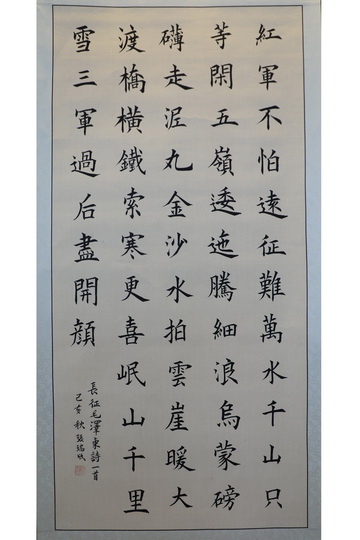 紅軍不怕遠征難萬水千山只
等閑五嶺逶迤騰細浪烏蒙磅
礴走泥丸金沙水拍雲崖暖大
渡橋橫鐵索寒更喜岷山千里
雪三軍過后盡開顏
長征毛澤東詩一首
己亥秋張瑞